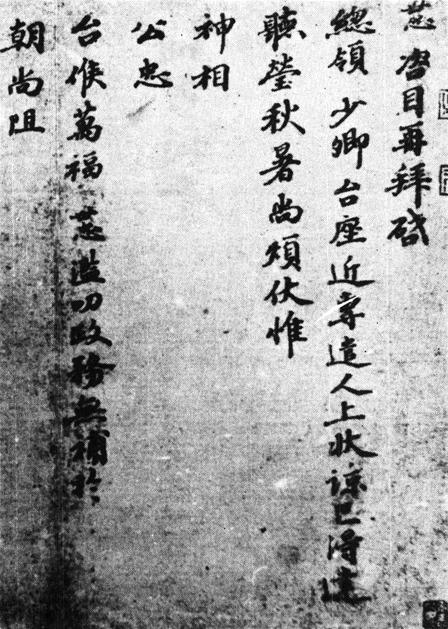 咨目再拜啟
總領少卿台座近專遣人上狀諒已得達
聽瑩秋暑尚煩伏惟
神相
公忠
台候萬福 濫叨政務無補於
朝尚阻